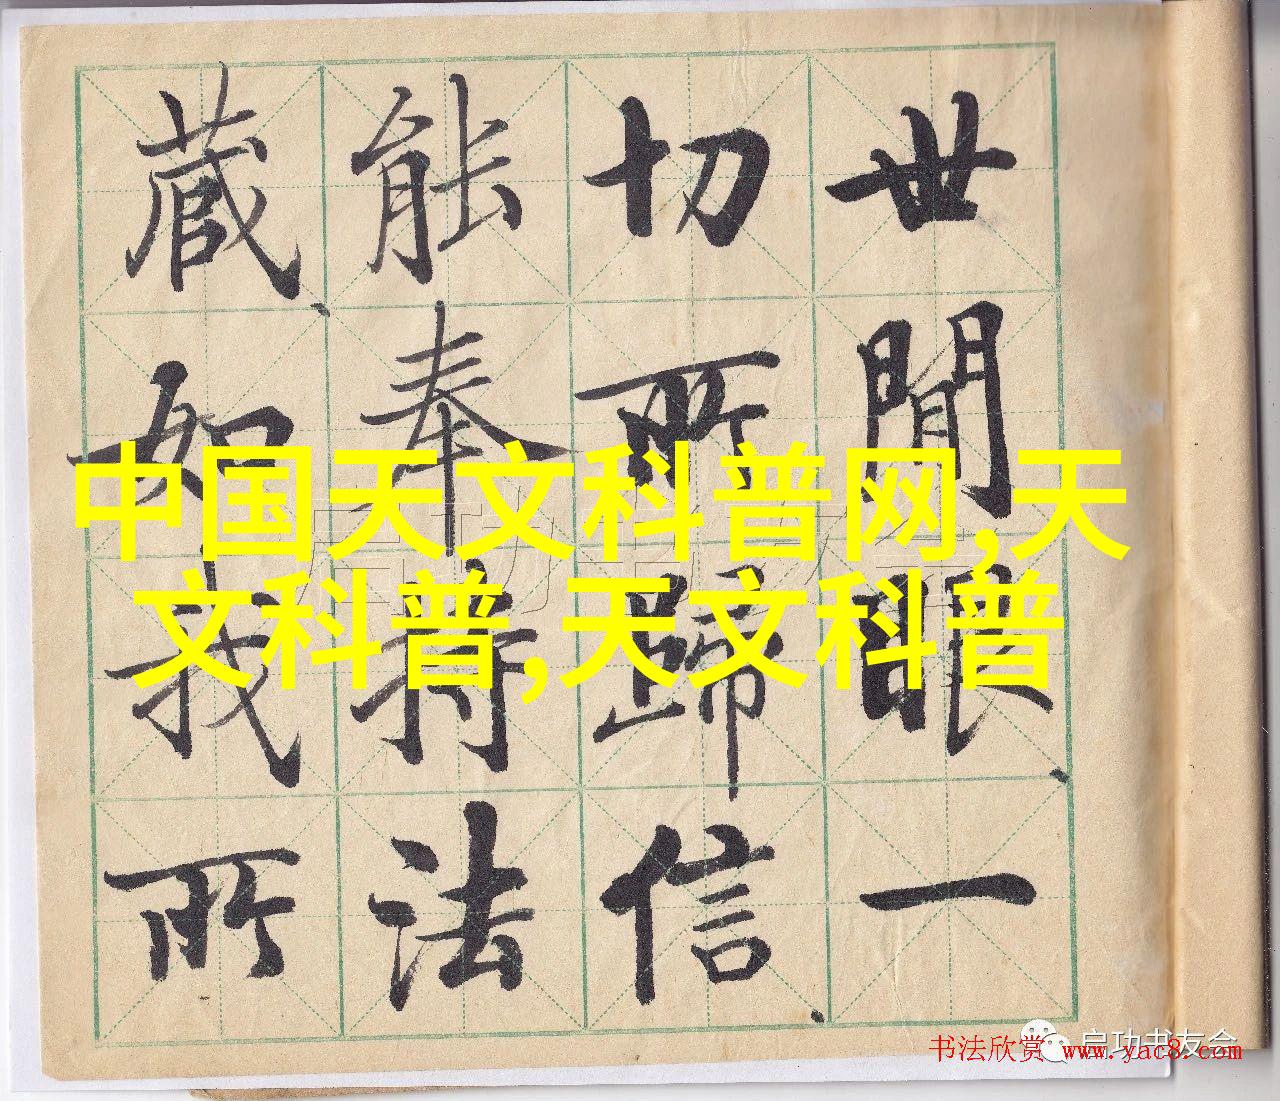 世間眼一
切所歸信
能奉持法
藏如我所
中国天文科普网,天
文科普,天文科普
启功书友会
书法欣赏 www.yac8.com